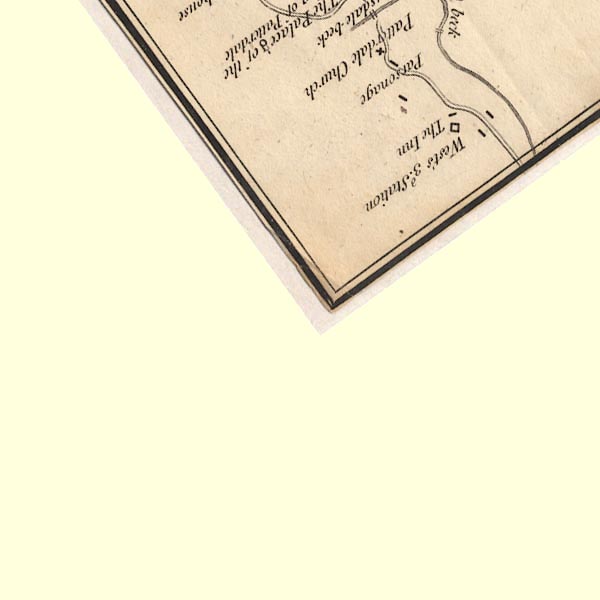 house
The Palace of the
of Patterdale
beck
Patterdale Church
Parsonage
The Inn
West's 3.d Station
beck